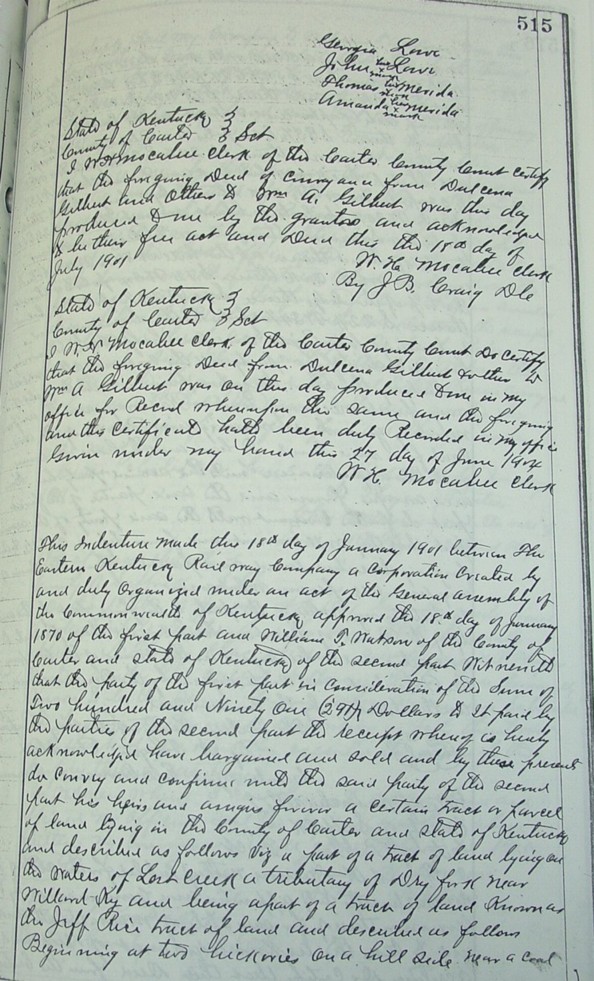 515
Georgia Lowe
John his x mark Lowe
Thomas his x mark Merida
Amanda her x mark Merida
State of Kentucky }
County of Carter } Sct
I W H Mocabee Clerk of the Carter County Court certify
that the foregoing Deed of Conveyance from Dulcena
Gilbert and Others to Wm A. Gilbert was this day
produced to me by the grantors and acknowledged
to be their free act and Deed this the 18th day of
July 1901
W. H. Mocabee Clerk
By J. B. Craig Dc
State of Kentucky }
County of Carter } Sct
I W. H. Mocabee Clerk of the Carter County Court Do Certify
that the foregoing Deed from Dulcena Gilbert & other to
Wm A Gilbert was on this day produced to me in my
office for Record whereupon the same and the foregoing
and this certificate hath been duly Recorded in my office
Given under my hand this 27 day of June 1904
W. H. Mocabee Clerk
This Indenture made this 18th day of January 1901 between The
Eastern Kentucky Railway Company a Corporation Created by
and duly Organized under an act of the General assembly of
the Commonwealth of Kentucky approved the 18th day of January
1870 of the first part and William T. Watson of the County of
Carter and state of Kentucky of the second part Witnesseth
that the party of the first part in consideration of the Sum of
Two hundred and Ninety One (291) Dollars to It paid by
the parties of the second part the receipt whereof is hereby
acknowledged have bargained and sold and by these presents
do convey and confirm unto the said party of the second
part his heirs and assigns forever a certain tract or parcel
of land lying in the County of Carter and state of Kentucky
and described as follows viz a part of a tract of land lying on
the waters of Lost Creek a tributary of Dry fork near
Willard Ky and being a part of a tract of land Known as
the Jeff Rice tract of land and described as follows
Beginning at two hickories on a hill side near a coal